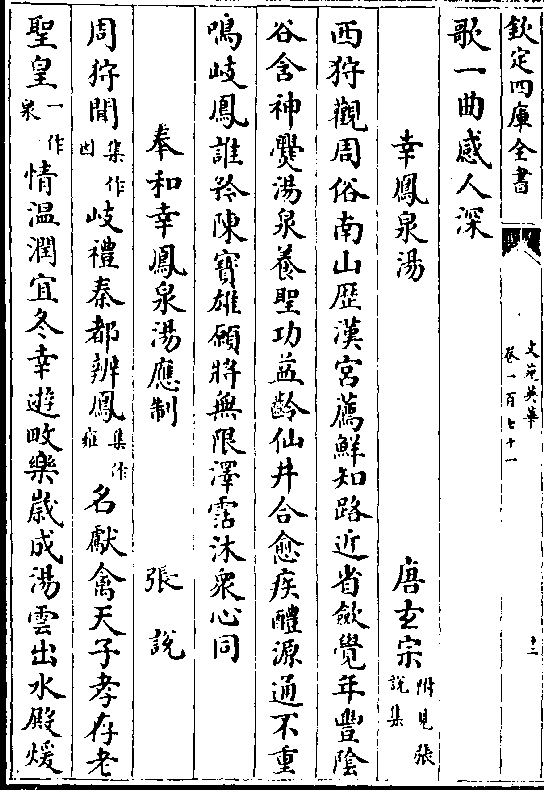 欽定四庫全書
文苑英華
卷一百七十一
十二
歌一曲感人深
幸鳳泉湯 唐玄宗附見張說集
西狩觀周俗南山歴漢宫薦鮮知路近省斂覺年豐陰
谷含神爨湯泉養聖功益齡仙井合愈疾醴源通不重
鳴岐鳳誰矜陳寶雄願將無限澤霑沐衆心同
奉和幸鳳泉湯應制 張說
周狩聞集作囱岐禮秦都辨鳳集作雍名獻禽天子孝存老
聖皇一作衆情温潤宜冬幸遊畋樂歲成湯雲出水殿煖